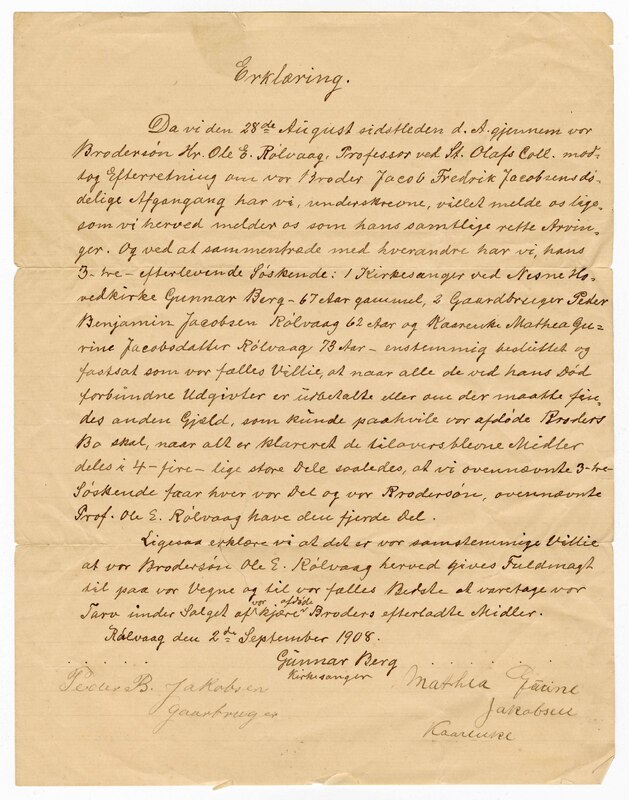 Erklæring.
Da vi den 28de August sidstleden d. A. gjennem vor
Brodersøn Hr. Ole E. Rölvaag, Professor ved St. Olafs Coll. mod-
tog Efterretning om vor Broder Jacob Fredrik Jacobsens dö-
delige Afgangang har vi, underskrevne, villet melde os lige-
som vi herved melder os som hans samtlige rette Arvin-
ger. Og ved at sammentræde med hverandre har vi, hans
3-tre- efterlevende Söskende: 1 Kirkesanger ved Nesne Ho-
vedkirke Gunnar Berg - 67 Aar gammel, 2 Gaardbruger Peder
Benjamin Jacobsen Rölvaag 62 Aar og Kaarenke Mathea Gu-
rine Jacobsdatter Rölvaag 73 Aar - enstemmig besluttet og
fastsat som vor fælles Villie, at naar alle de ved hans Död
forbundne Udgivter er udbetalte eller om der maatte fin-
des anden Gjæld, som kunde paahvile vor afdöde Broders
Bo skal, naar alt er klareret de tiloversblevne Midler
deles i 4-fire- lige store Dele saaledes, at vi ovennævnte 3-tre
Söskende faar hver vor Del og vor Brodersön, ovennævnte
Prof. Ole E. Rölvaag have den fjerde Del.
Ligesaa erklære vi at det er vor samstemmige Villie
at vor Brodersön Ole E. Rölvaag herved gives Fuldmagt
til paa vor Vegne og til vor fælles Bedste at varetage vor
Tarv under Salget af vor kjære afdöde Broders efterladte Midler.
Rölvaag den 2de September 1908.
Gunnar Berg
Kirkesanger
Peder B. Jakobsen
gaarbruger
Mathea Gurine
Jakobsen
Kaarenke